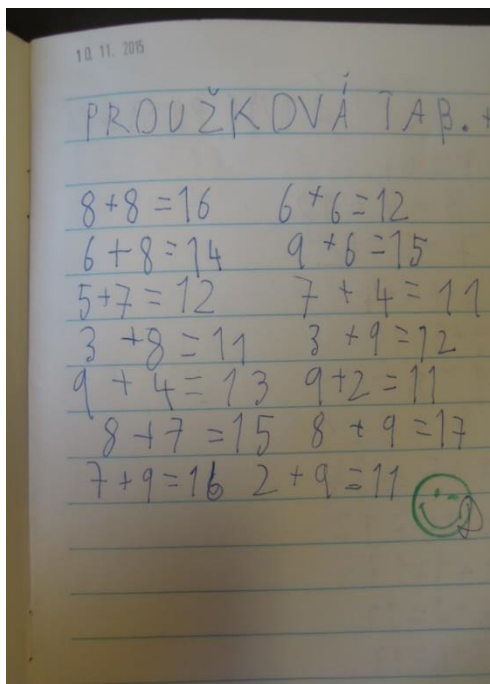 10. 11. 2015
PROUŽKOVÁ TAB. +
8+8=16 6+6=12
6+8=14 9+6=15
5+7=12 7+4=11
3+8=11 3+9=12
9+4=13 9+2=11
8+7=15 8+9=17
7+9=16 2+9=11